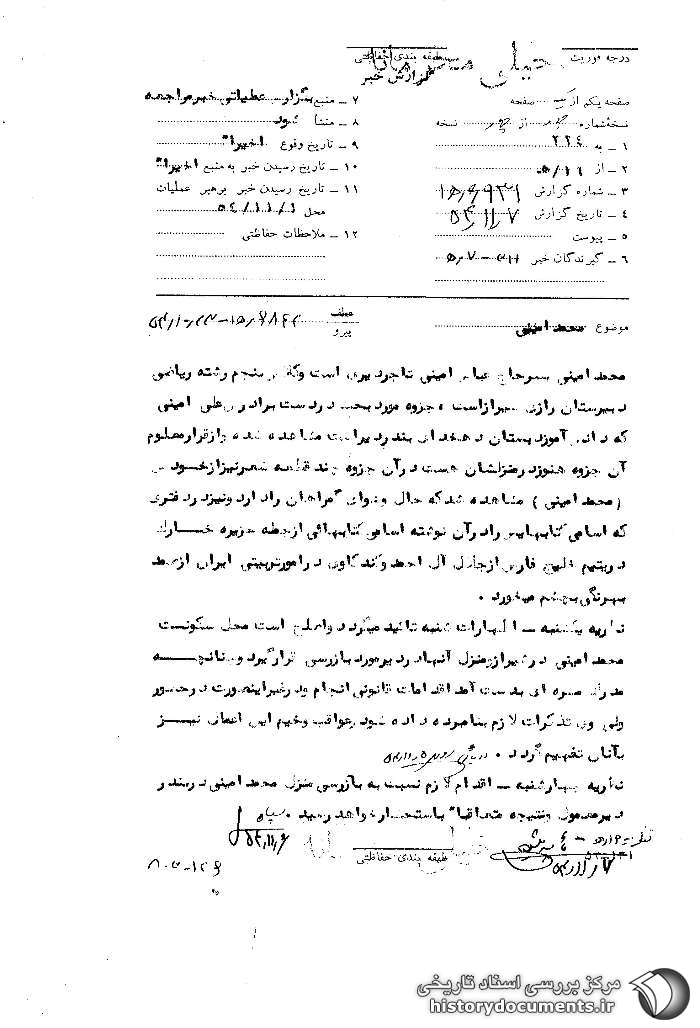 درجه فوریت
طبقه بندی حفاظتی
خیلی محرمانه
گزارش خبر
صفحه یکم از صفحه
نسخهٔ شماره از نسخه
۱ - به ۲۲۴
۲ - از ۵/۱۱
۳ - شماره گزارش
۴ - تاریخ گزارش ۵۴/۱۱/۷
۵ - پیوست
۶ - گیرندگان خبر
۷ - منبع عملیاتی خبر مراجعه
۸ - منشأ خود
۹ - تاریخ وقوع اخیراً
۱۰ - تاریخ رسیدن خبر به منبع اخیراً
۱۱ - تاریخ رسیدن خبر برهبر عملیات
محل ۵۴/۱۱/۱
۱۲ - ملاحظات حفاظتی
موضوع محمد امینی
عطف
پیرو
محمد امینی پسر حاج عباس امینی تاجر دیری است و کلاس پنجم رشته ریاضی
دبیرستان رازی شیراز است جزوه مورد بحث در دست برادرش علی امینی
که دانش آموز دبستان دهخدای بندر دیر است مشاهده شده و از قرار معلوم
آن جزوه هنوز در منزلشان هست در آن جزوه چند قطعه شعر نیز از خودش
(محمد امینی) مشاهده شد که حال و هوای گمراهان را دارد و نیز دفتری
که اسامی کتابهایش را در آن نوشته اسامی کتابهائی از جمله جزیره خارک
در یتیم خلیج فارس از جلال آل احمد و کند کاوی در امور تربیتی ایران از صمد
بهرنگی بچشم میخورد .
نظریه یکشنبه - اظهارات شنبه تائید میگردد و اصلح است محل سکونت
محمد امینی در شیراز و منزل آنها در دیر مورد بازرسی قرار گیرد و چنانچه
مدارک مضره ای بدست آمد اقدامات قانونی انجام و در غیر اینصورت در حضور
ولی وی تذکرات لازم بنامبرده داده شود و عواقب وخیم این اعمال نیز
بآنان تفهیم گردد .
نظریه چهارشنبه - اقدام لازم نسبت به بازرسی منزل محمد امینی در بندر
دیر معمول و نتیجه متعاقباً باستحضار خواهد رسید . سپاه
طبقه بندی حفاظتی
مرکز بررسی اسناد تاریخی
historydocuments.ir